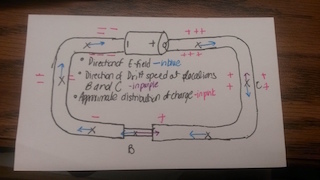 - +
• Direction of E-field - in blue
• Direction of Drift speed at locations
B and C - in purple
• Approximate distribution of charge - in pink
C
B